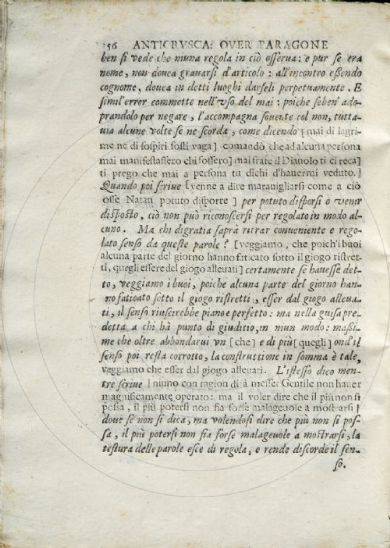 156 ANTICRVSCA: OVER PARAGONE
ben si vede che niuna regola in ciò osserua: e pur se era
nome, non douea grauarsi d'articolo: all'incontro essendo
cognome, douea in detti luoghi darseli perpetuamente. E
simil'error commette nell'vso del mai: poiche seben' ado-
prandolo per negare, l'accompagna souente col non, tutta-
uia alcune volte se ne scorda, come dicendo [mai di lagri-
me nè di sospiri fosti vaga] comandò che ad alcuna persona
mai manifestassero chi fossero] mai frate il Diauolo ti ci reca]
ti prego che mai a persona tu dichi d'hauermi veduto.]
Quando poi scriue [venne a dire marauigliarsi come a ciò
osse Natan potuto disporre] per potuto disporsi o venir
disposto, ciò non può riconoscersi per regolato in modo al-
cuno. Ma chi digratia saprà ritrar conueniente e rego-
lato senso da queste parole? [veggiamo, che poich'i buoi
alcuna parte del giorno hanno faticato sotto il giogo ristret-
ti, quegli essere del giogo alleuati] certamente se hauesse det-
to, veggiamo i buoi, poiche alcuna parte del giorno han-
no faticato sotto il giogo ristretti, esser dal giogo alleua-
ti, il senso riuscirebbe piano e perfetto: ma nella guisa pre-
detta a chi hà punto di giuditio, in niun modo: massi-
me che oltre abbondarui vn [che] e di più [quegli] ond'il
senso poi resta corrotto, la construttione in somma è tale,
veggiamo che esser dal giogo alleuati. L'istesso dico men-
tre scriue [niuno con ragion dirà messer Gentile non hauer
magnificamente operato: ma il voler dire che il più non si
possa, il più potersi non fia forse malageuole a mostrarsi]
doue se non si dica, ma volendosi dire che più non si pos-
sa, il più potersi non fia forse malageuole a mostrarsi, la
testura delle parole esce di regola, e rende discorde il sen-
so.